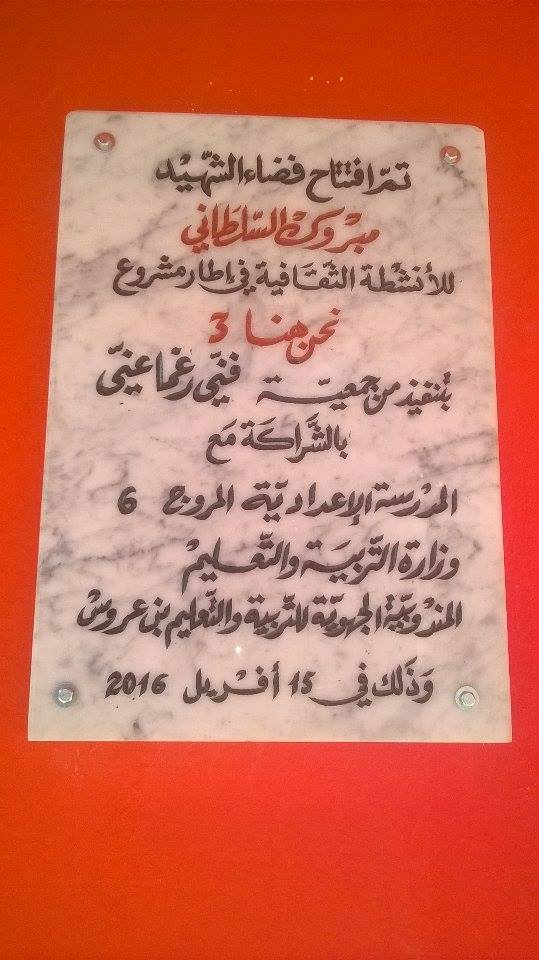 تمّ افتتاح فضاء الشّهيد
مبروك السّلطاني
للأنشطة الثّقافية في إطار مشروع
نحن هنا 3
بتنفيذ من جمعيّة فنّي رغما عنّي
بالشَّراكَة مَع
المدْرسة الإعداديّة المروج 6
وزارة التّربيَة والتّعليمْ
المندُوبيّة الجهويّة للتّربية والتّعليم بن عروسْ
وَذَلك في 15 أفريل 2016